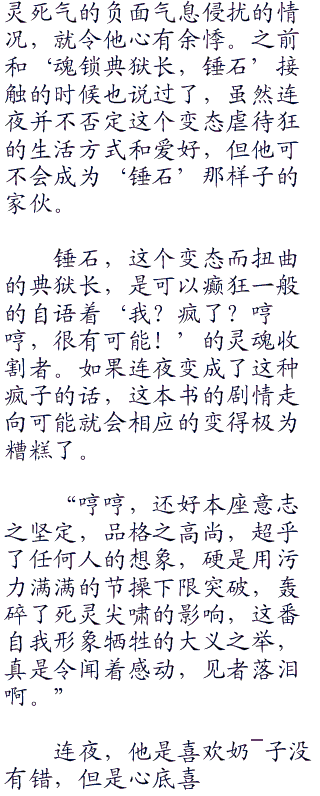 灵死气的负面气息侵扰的情
况，就令他心有余悸。之前
和‘魂锁典狱长，锤石’接
触的时候也说过了，虽然连
夜并不否定这个变态虐待狂
的生活方式和爱好，但他可
不会成为‘锤石’那样子的
家伙。
锤石，这个变态而扭曲
的典狱长，是可以癫狂一般
的自语着‘我？疯了？哼
哼，很有可能！’的灵魂收
割者。如果连夜变成了这种
疯子的话，这本书的剧情走
向可能就会相应的变得极为
糟糕了。
“哼哼，还好本座意志
之坚定，品格之高尚，超乎
了任何人的想象，硬是用污
力满满的节操下限突破，轰
碎了死灵尖啸的影响，这番
自我形象牺牲的大义之举，
真是令闻着感动，见者落泪
啊。”
连夜，他是喜欢奶¯子没
有错，但是心底喜